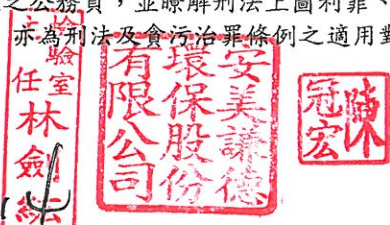 之公務員，並瞭解刑法上圖利罪、
亦為刑法及貪污治罪條例之適用對
檢驗室
主任林劍
安美謙德
環保股份
有限公司
陳
冠宏